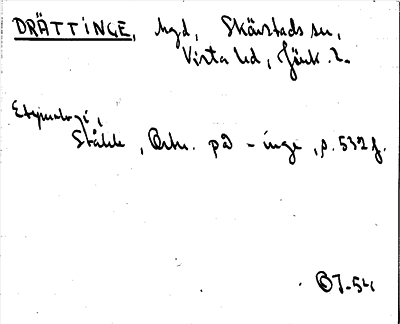 DRÄTTINGE, hgd, Skärstads sn,
Vista hd, Jönk. l.
Etymologi,
Ståhle, Ortn. på -inge, p. 532 f.
OJ-54